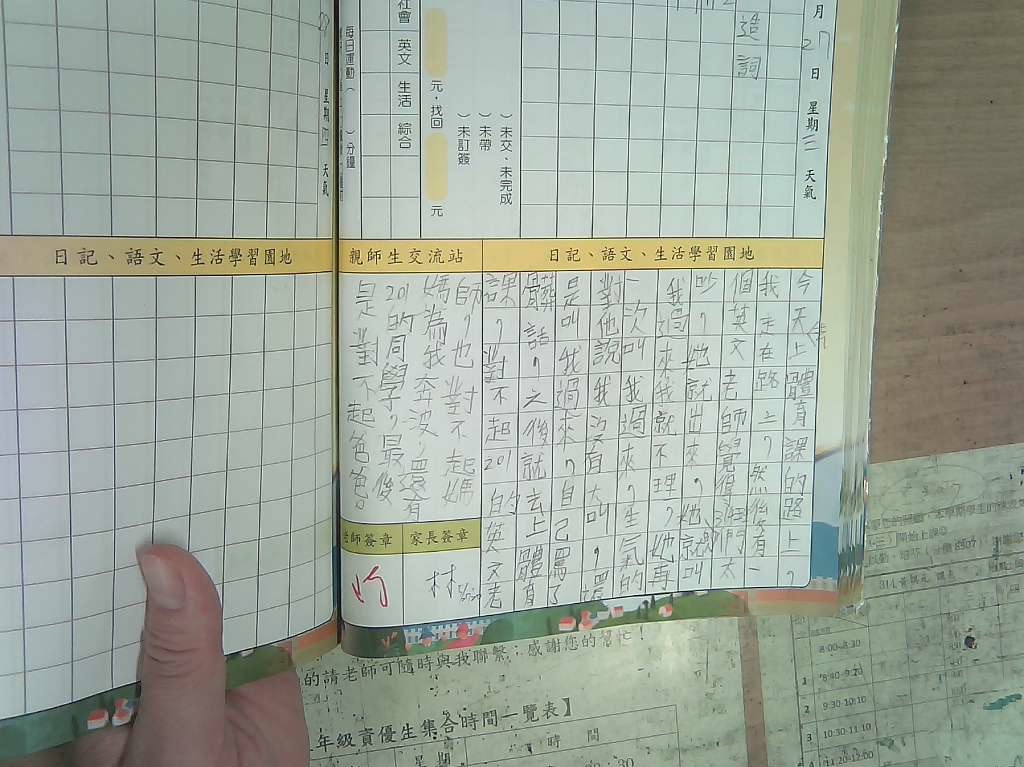 月27日 星期三 天氣
造詞
社會 英文 生活 綜合
元，找回 元
）未交、未完成
）未帶
）未訂簽
每日運動（ ）分鐘
日 星期四 天氣
日記、語文、生活學習園地
今天上體育課的路上，
我走在路上，然後有一
個英文老師覺得我們太
吵，她就出來，她就叫
我過來我就不理，她再
一次叫我過來，生氣的
對他說我沒有大叫，還
是叫我過來，自己罵了
髒話，之後就去上體育
課，對不起201的英文老
親師生交流站
師，也對不起媽
媽為我奔波，還有
201的同學，最後
是對不起爸爸
家長簽章
老師簽章
林
日記、語文、生活學習園地
的請老師可隨時與我聯繫，感謝您的幫忙！
年級資優生集合時間一覽表】
星期 時間
開始上課
8:00-8:30
1 8:40-9:20
2 9:30-10:10
3 10:30-11:10
4 11:20-12:00